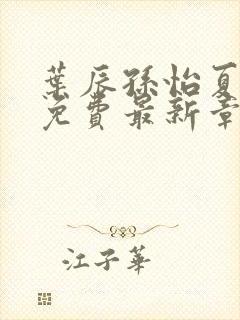 葉辰孫怡夏
免費最新章
江子華